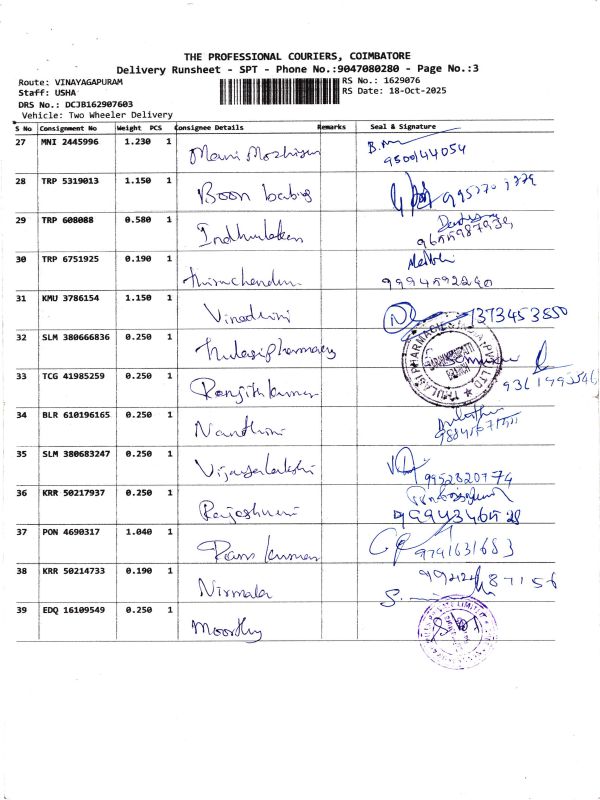 THE PROFESSIONAL COURIERS, COIMBATORE
Delivery Runsheet - SPT - Phone No.:9047080280 - Page No.:3
Route: VINAYAGAPURAM RS No.: 1629076
Staff: USHA RS Date: 18-Oct-2025
DRS No.: DCJB162907603
Vehicle: Two Wheeler Delivery
S No Consignment No Weight PCS Consignee Details Remarks Seal & Signature
27 MNI 2445996 1.230 1 Mani Mozhiyan
9500144054
28 TRP 5319013 1.150 1 Boon babu
29 TRP 608088 0.580 1
30 TRP 6751925 0.190 1
9994592240
31 KMU 3786154 1.150 1 Vinodhini
7373453550
32 SLM 380666836 0.250 1 Thulasi pharmacy
33 TCG 41985259 0.250 1 Ranjith kumar
34 BLR 610196165 0.250 1 Nandhini
35 SLM 380683247 0.250 1 Vijayalakshi
9952820774
36 KRR 50217937 0.250 1
37 PON 4690317 1.040 1 Ram kumar
9791631683
38 KRR 50214733 0.190 1 Nirmala
39 EDQ 16109549 0.250 1 Moorthy